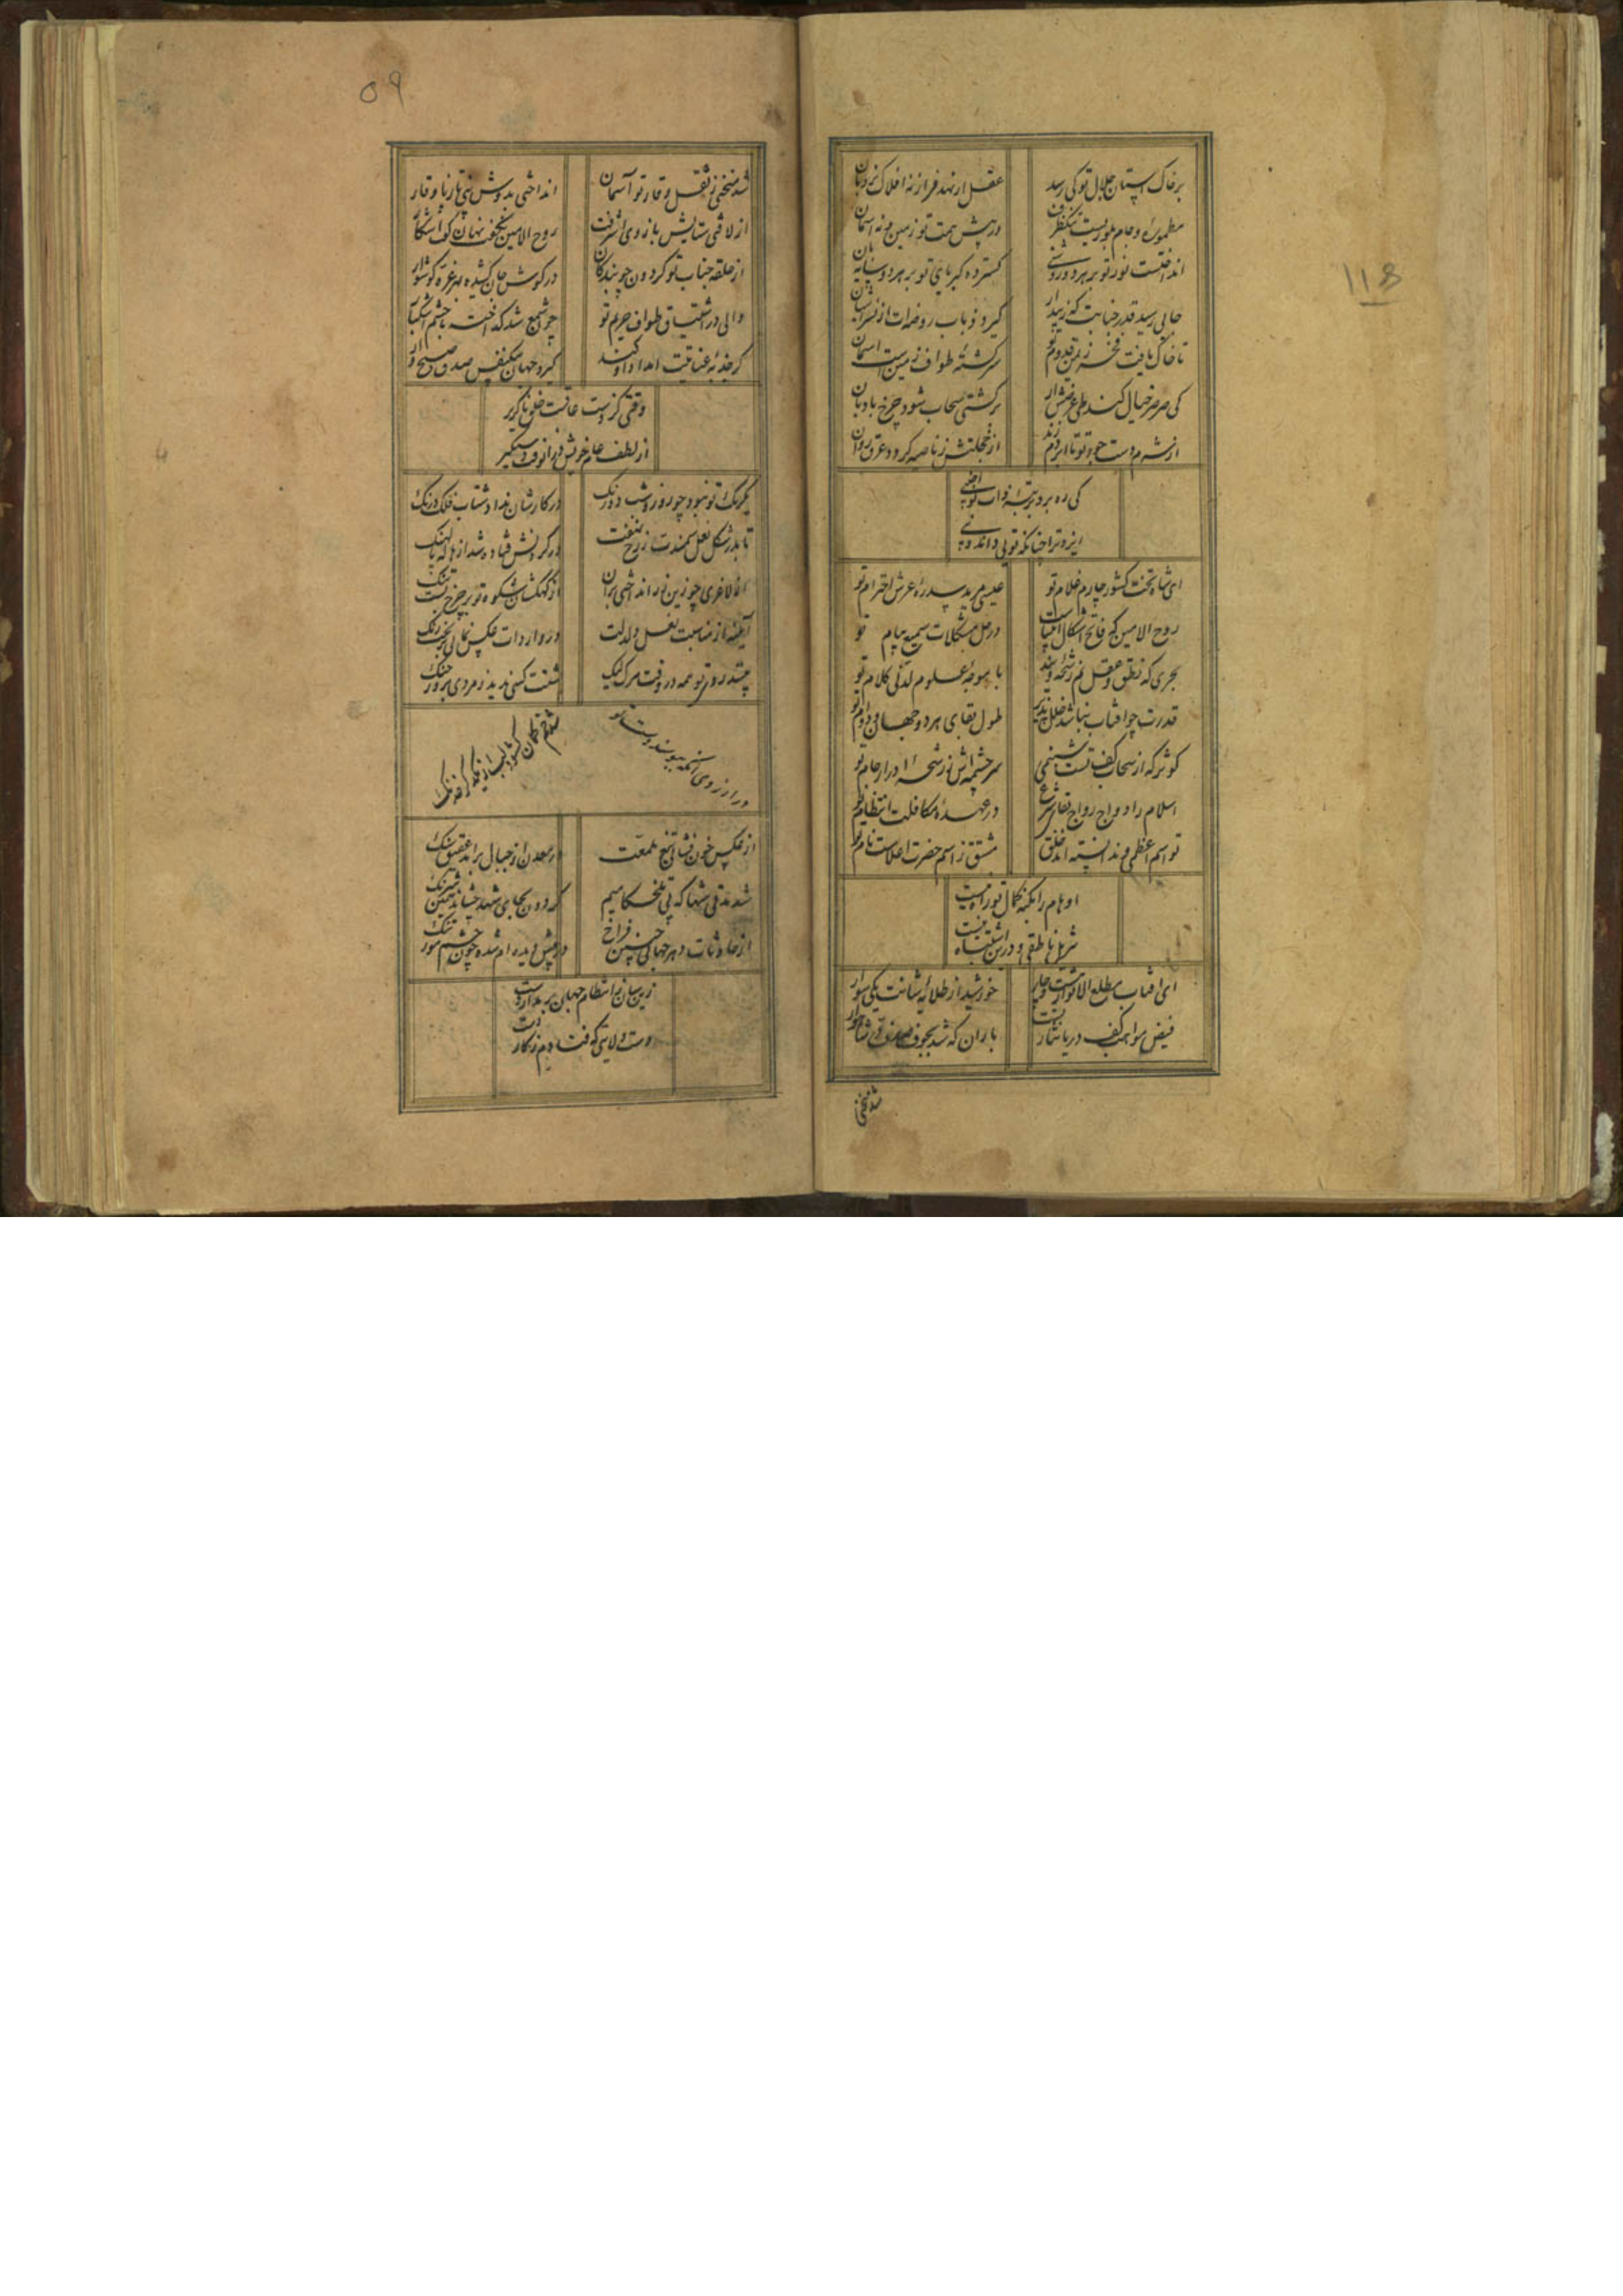 برخاک آستان جلال تو کی رسد
عقل ار نهد فراز نه افلاک نردبان
مطموره و جام بلوریست
در پیش همت تو زمین و نه آسمان
انداختست نور تو بر هر دو روشنی
گسترده کبریای تو بر هر دو سایه بان
جایی رسید قدر جنابت که
گیرد ز باب روضه ات از
تا خاک یافت فخر ز یمن قدوم تو
سرگشته طواف زمین است آسمان
کی صرصر خیال کند طی
بر کشتی سحاب شود چرخ بادبان
از شرم دست جود تو تا ابر دم زند
از خجلتش ز ناصیه گردد عرق روان
کی ره برد برتبه ذات تو
ایزد ترا چنانکه تویی داند و
ای شاه تخت کشور چارم غلام تو
عیسی مرید سدره عرش احترام تو
روح الامین که فاتح اشکال انبیاست
در حل مشکلات سمیع پیام تو
بحری که نطق و عقل نم رشحه ویند
با موجه علوم لدنی کلام تو
قدرت چو آفتاب نباشد خلل پذیر
طول بقای هر دو جهان و دوام تو
کوثر که از سحاب کف تست شبنمی
سرچشمه اش نور شحه ۱۱ در ار جام تو
اسلام را دواج رواج شرع
در عهده مکافلت انتظام تو
تو اسم اعظمی و ندانسته اند خلق
مشتق ز اسم حضرت اعلاست نام تو
اوهام را بکنه کمال تو راه نیست
شرک ناطقی و در این اشتباه نیست
ای آفتاب مطلع الانوار هشت و چار
خورشید از طلایه شانت یکی سوار
فیض مواهب کف دریا نثار تست
باران که شد بجوف صدف در شاهوار
شد منحنی
۵۹
شد منحنی ز ثقل وقار تو آسمان
انداختی بدوش نبی تا ز پا وقار
از لافتی ستایش بازوی اشرفت
روح الامین نگفت نهان گفت آشکار
از حلقه جناب تو گردون چو بندگان
در گوش جان کشیده مه غره گوشوار
والی در اشتیاق طواف حریم تو
چون شمع شد گداخته با چشم اشکبار
گر جذبه عنایتت امداد او کند
گیرد جهان بیک نفس صدق صبح وار
وقتی کزوست عاقبت خلق ناگزیر
از لطف عام خویش درانوقت دستگیر
یکرنگ تو نبود چو روز و شب دو رنگ
در کارشان نداد شتاب فلک درنگ
تا بدر شکل نعل سمندت ز رخ نهفت
در گردنش فتاده شد از هاله پالهنگ
از لاغری چو زین زر انداختی بران
از کهکشان شکوه تو بر چرخ بست تنگ
آیینه از مناسبت لعل دلدلت
در واردات عکس نمایی
نشنفت کس ندید ز مردی بروز جنگ
از عکس خون فشانی تیغ تلمعت
در معدن از جبال براید عقیق سنگ
شد مدتی شها که پی تلخکامیم
گردون بجای شهد چشاند همین شرنگ
از حادثات دهر جهانی چنین فراخ
در پیش دیده ام شده چون چشم مور تنگ
زین سان ز انتظام جهان بر مدار دست
دست ولایتی که فتادم ز کار دست